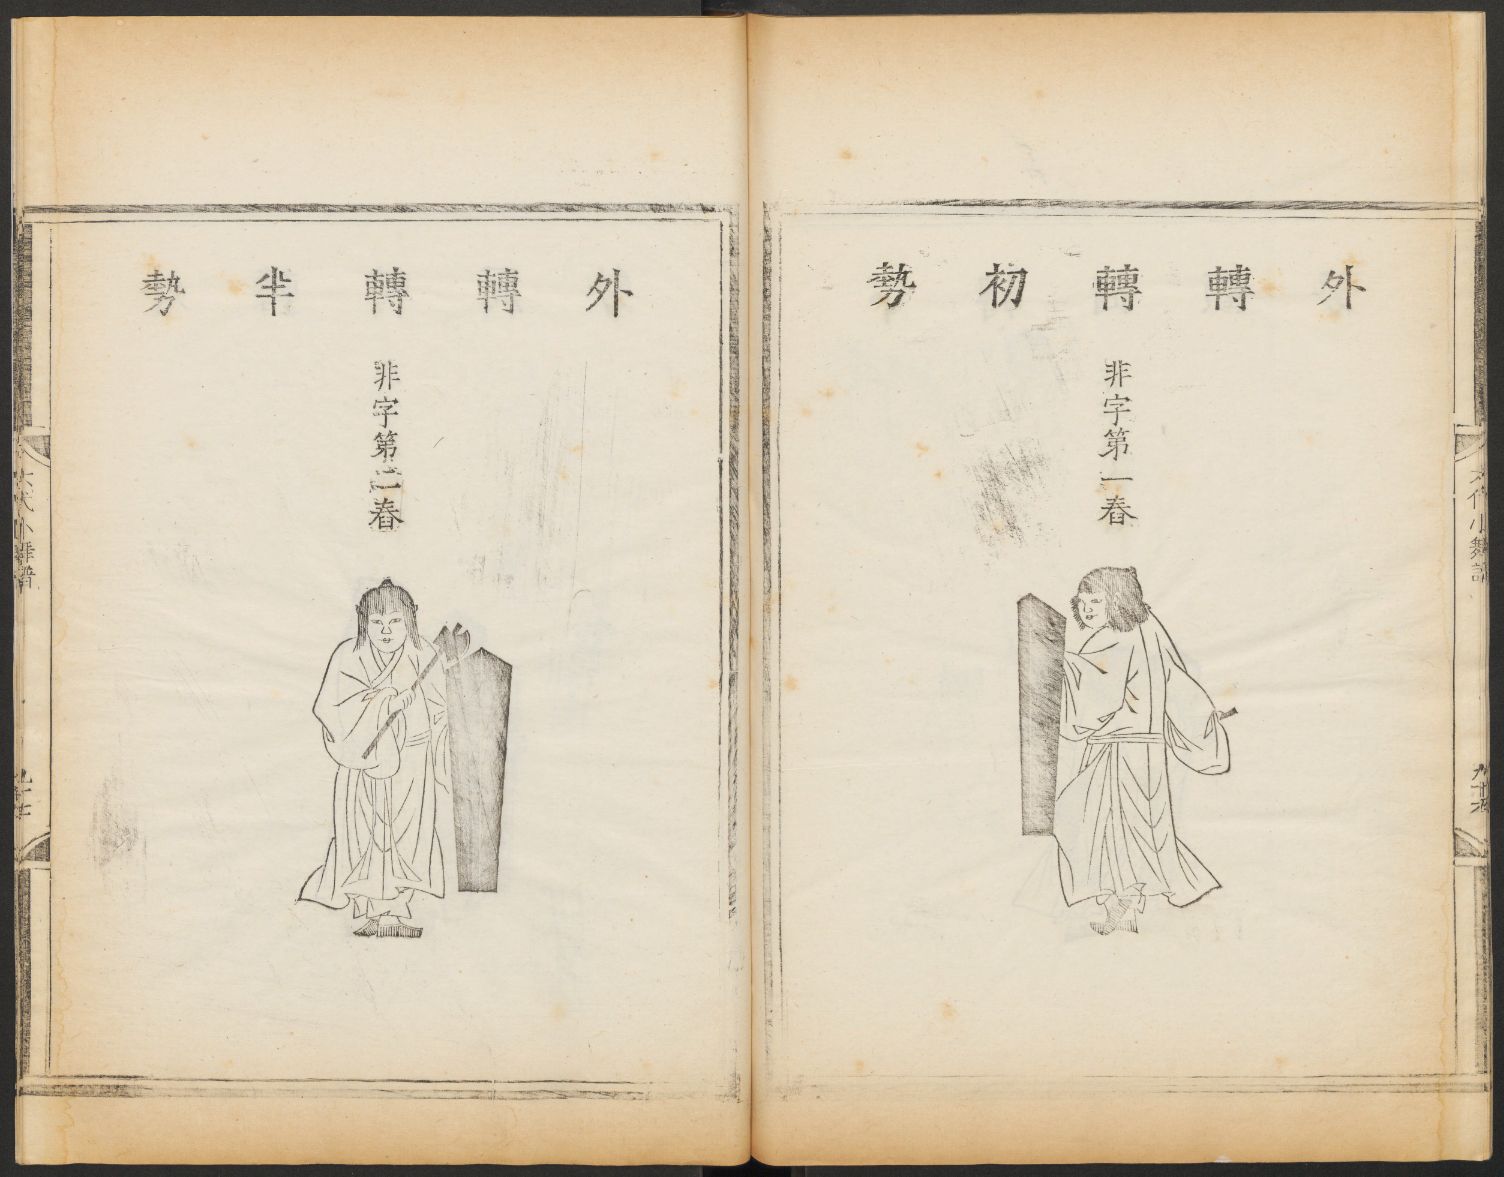 外轉轉初勢
非字第一舂
外轉轉半勢
非字第二舂
六代小舞譜